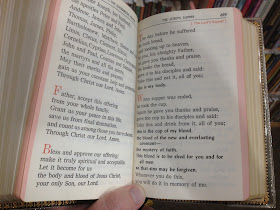 Andrew, James and John,
Thomas, James, Philip,
Bartholomew, Matthew, Simon
Linus, Cletus, Clement, Sixtus,
Cornelius, Cyprian, Lawrence,
John and Paul, Cosmas and
The martyrs and all the saints
May their merits and prayers
gain us your constant help and
Through Christ our Lord. Amen.
Father, accept this offering
from your whole family.
Grant us your peace in this life,
save us from final damnation,
and count us among those you have chosen.
Through Christ our Lord. Amen.
Bless and approve our offering;
make it truly spiritual and acceptable.
Let it become for us
the body and blood of Jesus Christ,
your only Son, our Lord.
day before he suffered
took bread,
looking up to heaven,
to you, his almighty Father,
gave you thanks and praise.
broke the bread,
gave it to his disciples and said:
Take this and eat it, all of you;
this is my body.
When supper was ended,
he took the cup.
Again he gave you thanks and praise,
gave the cup to his disciples and said:
Take this and drink from it, all of you;
this is the cup of my blood,
the blood of the new and everlasting
covenant—
the mystery of faith.
This blood is to be shed for you and for
all men
so that sins may be forgiven.
Whenever you do this,
you will do it in memory of me.